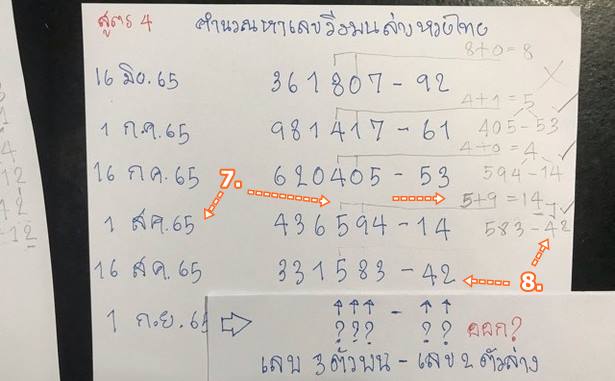 สูตร 4 คำนวณหาเลขวิ่งบนล่างหวยไทย
8+0=8
16 มิย. 65 361807 - 92
4+1=5
1 ก.ค. 65 981417 - 61 405-53
4+0=4
16 ก.ค. 65 620405 - 53 594-14
7.
5+9=14
1 ส.ค. 65 436594 - 14 583-42
16 ส.ค. 65 331583 - 42
8.
1 ก.ย. 65 ??? - ?? ออก?
เลข 3 ตัวบน - เลข 2 ตัวล่าง